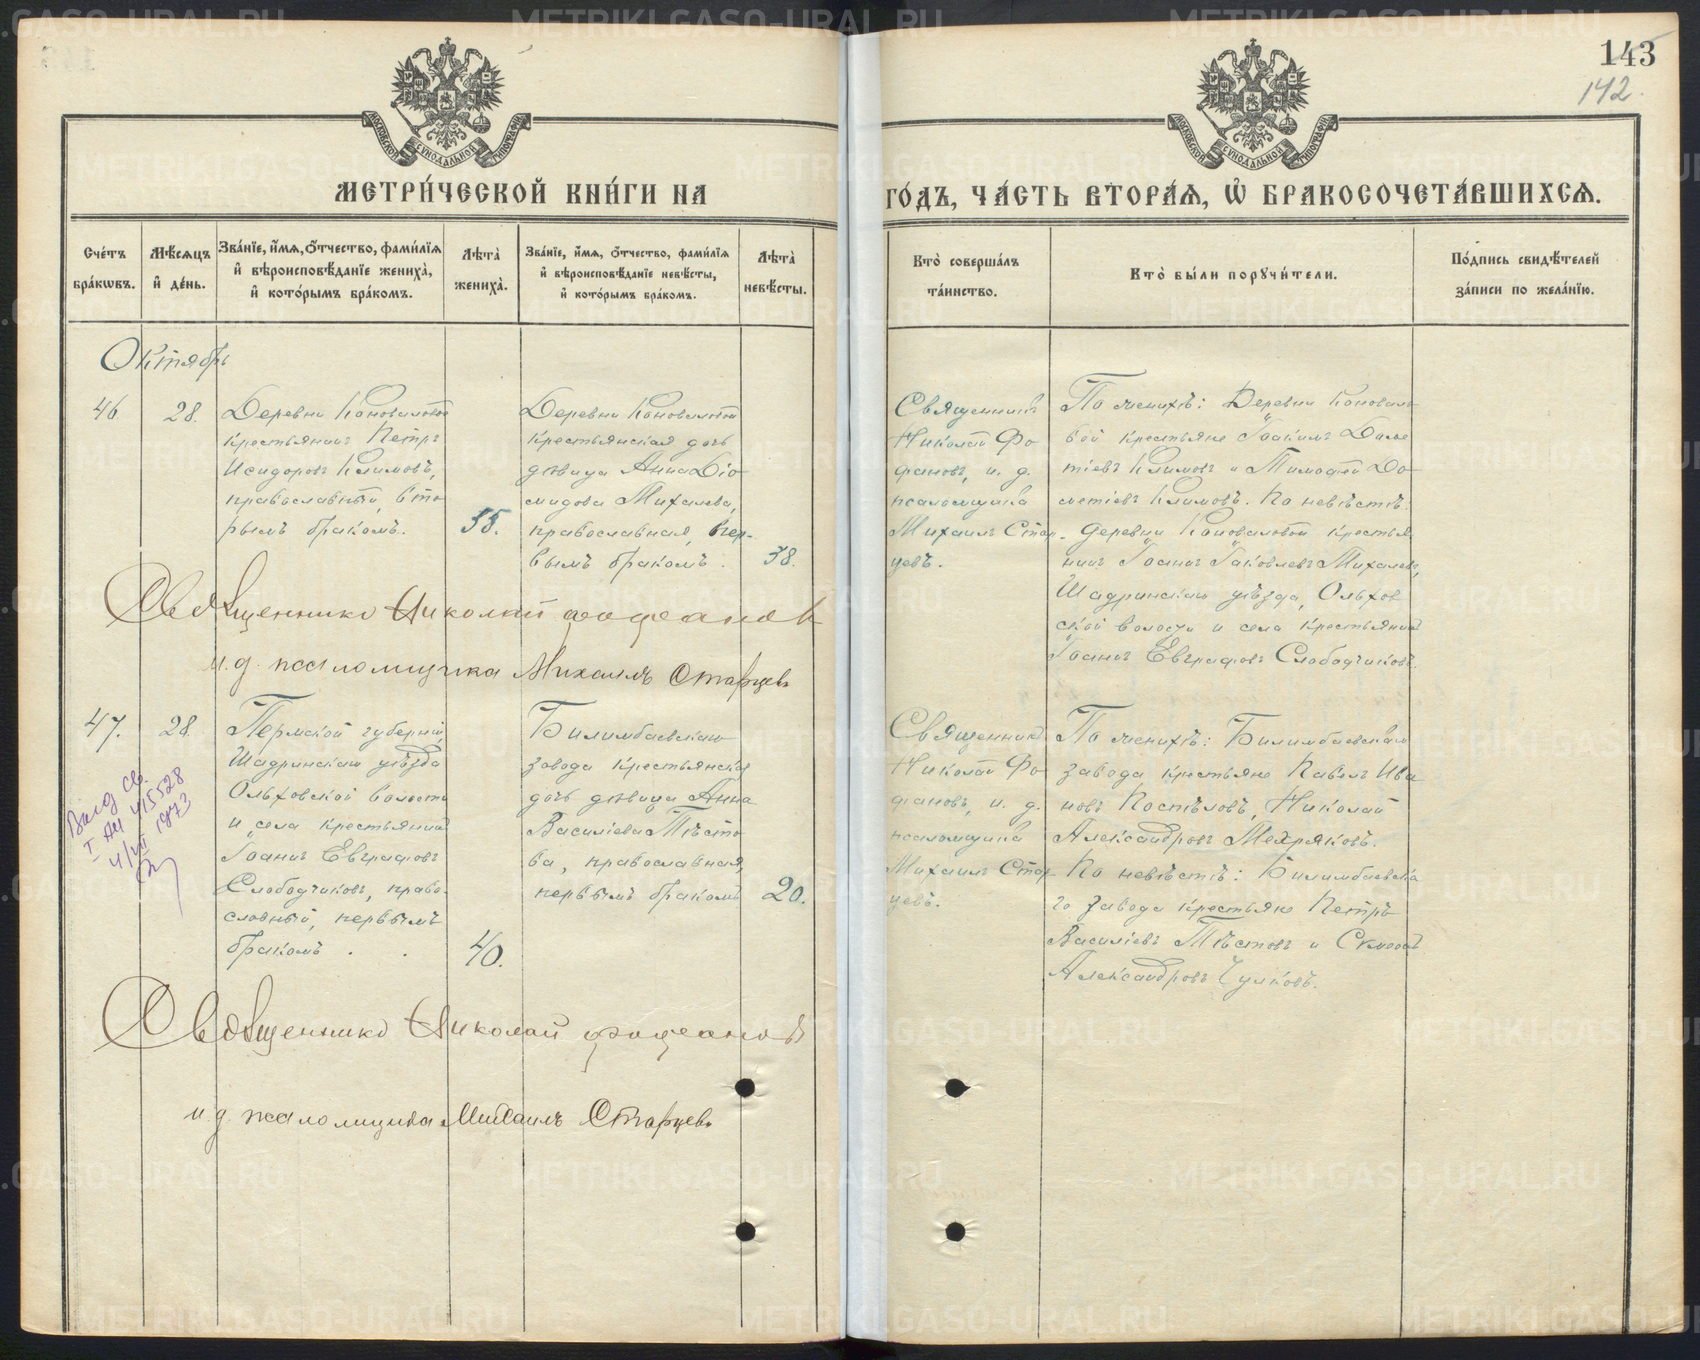 143
142
МЕТРИ́ЧЕСКОЙ КНИ́ГИ НА
ГО́ДЪ, ЧА́СТЬ ВТОРА́Я, Ѽ БРАКОСОЧЕТА́ВШИХСЯ.
Сче́тъ бра́кѡвъ.
Мѣ́сяцъ и де́нь.
Зва́нїе, и́мя, о́тчество, фами́лїя
и вѣроисповѣ́данїе жениха̀,
и кото́рымъ бра́комъ.
Лѣта̀ жениха̀.
Зва́нїе, и́мя, о́тчество, фами́лїя
и вѣроисповѣ́данїе невѣ́сты,
и кото́рымъ бра́комъ.
Лѣта̀ невѣ́сты.
Кто̀ соверша́лъ та́инство.
Кто̀ бы́ли поручи́тели.
По́дпись свидѣ́телей за́писи по жела́нїю.
Октябрь
46
28.
Деревни Коноваловой
крестьянинъ Петръ
Исидоровъ Климовъ,
православный, вто-
рымъ бракомъ.
55.
Деревни Коноваловой
крестьянская дочь
дѣвица Анна Діо-
мидова Михалева,
православная, пер-
вымъ бракомъ.
38.
Священникъ
Николай Фо
фановъ, и. д.
псаломщика
Михаилъ Стар-
цевъ.
По женихѣ: Деревни Коновало
вой крестьяне Іоакимъ Доме
тіевъ Климовъ и Тимофей До
метіевъ Климовъ. По невѣстѣ:
деревни Коноваловой крестья
нинъ Іоаннъ Іаковлевъ Михалевъ,
Шадринскаго уѣзда, Ольхов
ской волости и села крестьянинъ
Іоаннъ Евграфовъ Слободчиковъ.
Священникъ Николай Фофановъ
и. д. псаломщика Михаилъ Старцевъ
47.
28
Пермской губерніи,
Шадринскаго уѣзда
Ольховской волости
и села крестьянинъ
Іоаннъ Евграфовъ
Слободчиковъ, право-
славный, первымъ
бракомъ.
40.
Билимбаевскаго
завода крестьянская
дочь дѣвица Анна
Василіева Тѣсто
ва, православная,
первымъ бракомъ
20.
Священникъ
Николай Фо
фановъ, и. д.
псаломщика
Михаилъ Стар
цевъ.
По женихѣ: Билимбаевскаго
завода крестьяне Павелъ Ива
новъ Постѣловъ, Николай
Александровъ Мехряковъ.
По невѣстѣ: Билимбаевска
го завода крестьяне Петръ
Василіевъ Тѣстовъ и
Александровъ Чулковъ.
I АИ 415528
4/VII 1973
Священникъ Николай Фофановъ
и. д. псаломщика Михаилъ Старцевъ
METRIKI.GASO-URAL.RU